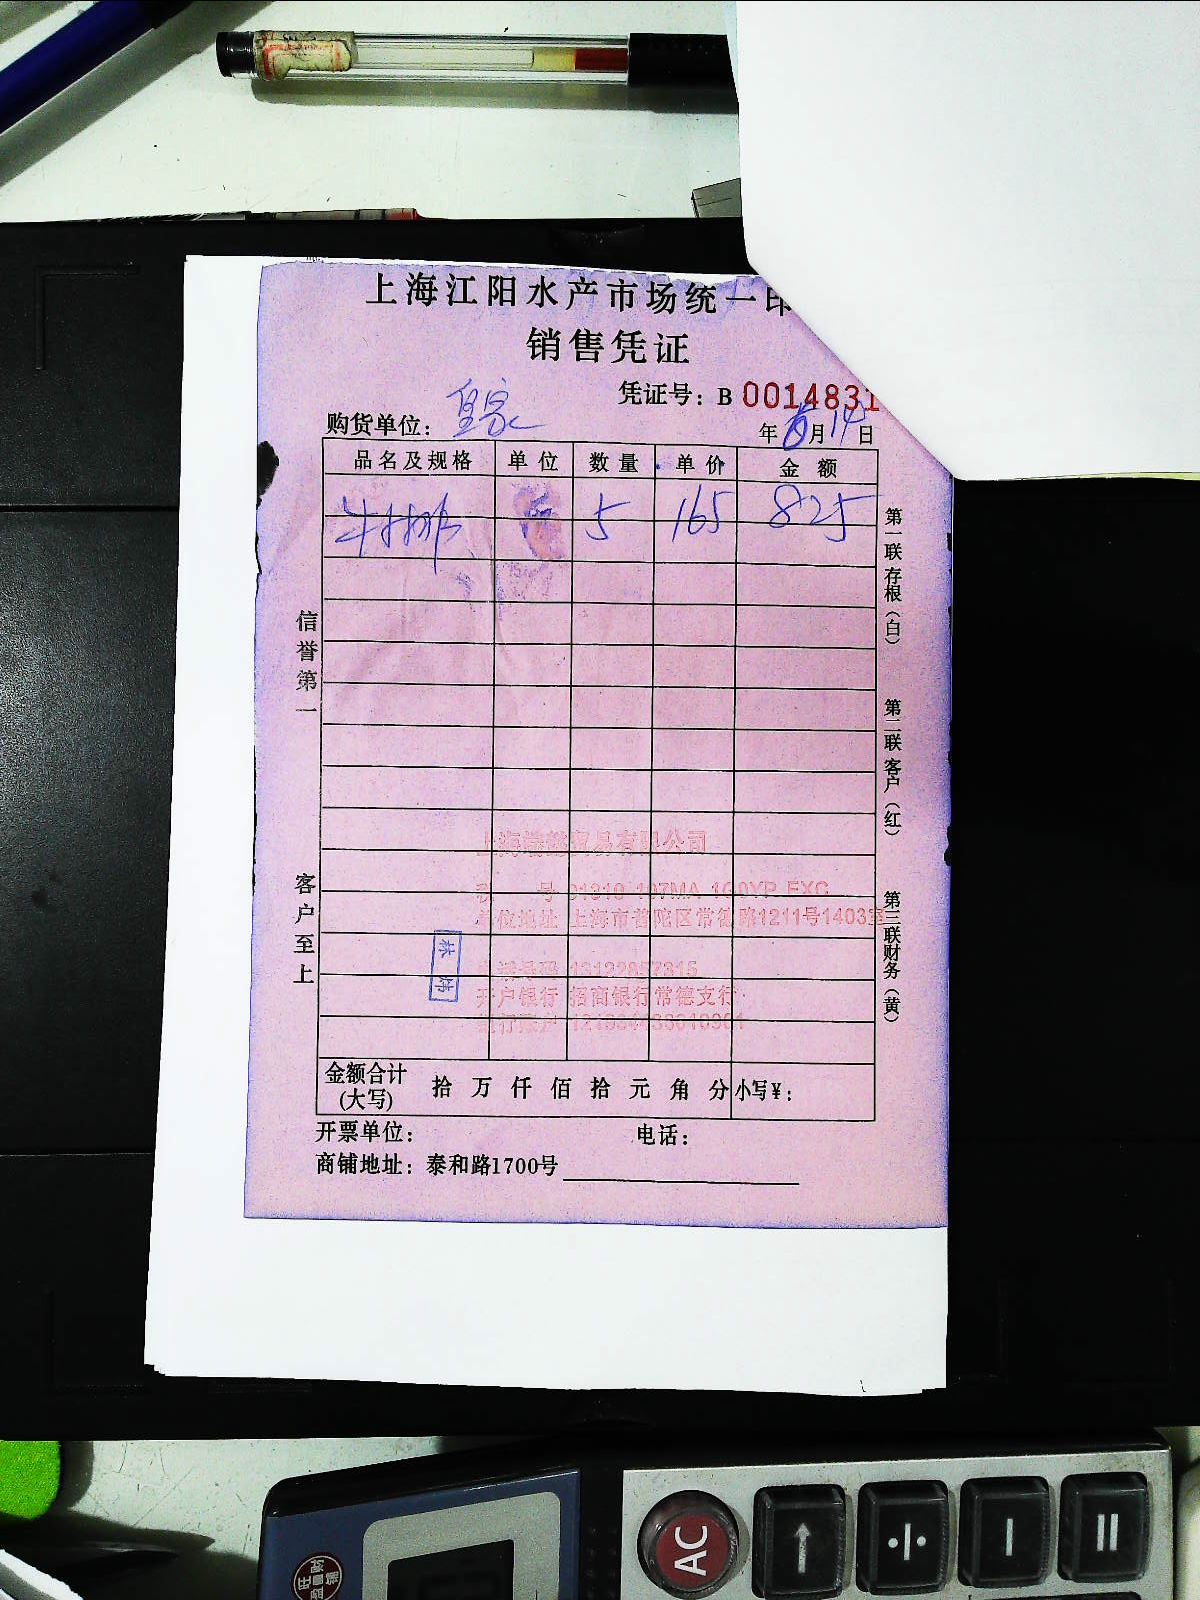 上海江阳水产市场统一印
销售凭证
凭证号：B 0014831
购货单位：皇家
年 月14日
品名及规格 单位 数量 单价 金额
牛排 5 165 825
信誉第一
客户至上
第一联存根（白）
第二联客户（红）
第三联财务（黄）
贸易有限公司
号
单位地址 上海市普陀区常德路1211号1403室
开户银行 招商银行常德支行
林炜
金额合计(大写) 拾万仟佰拾元角分 小写¥：
开票单位： 电话：
商铺地址：泰和路1700号
AC
↑
÷
−
=